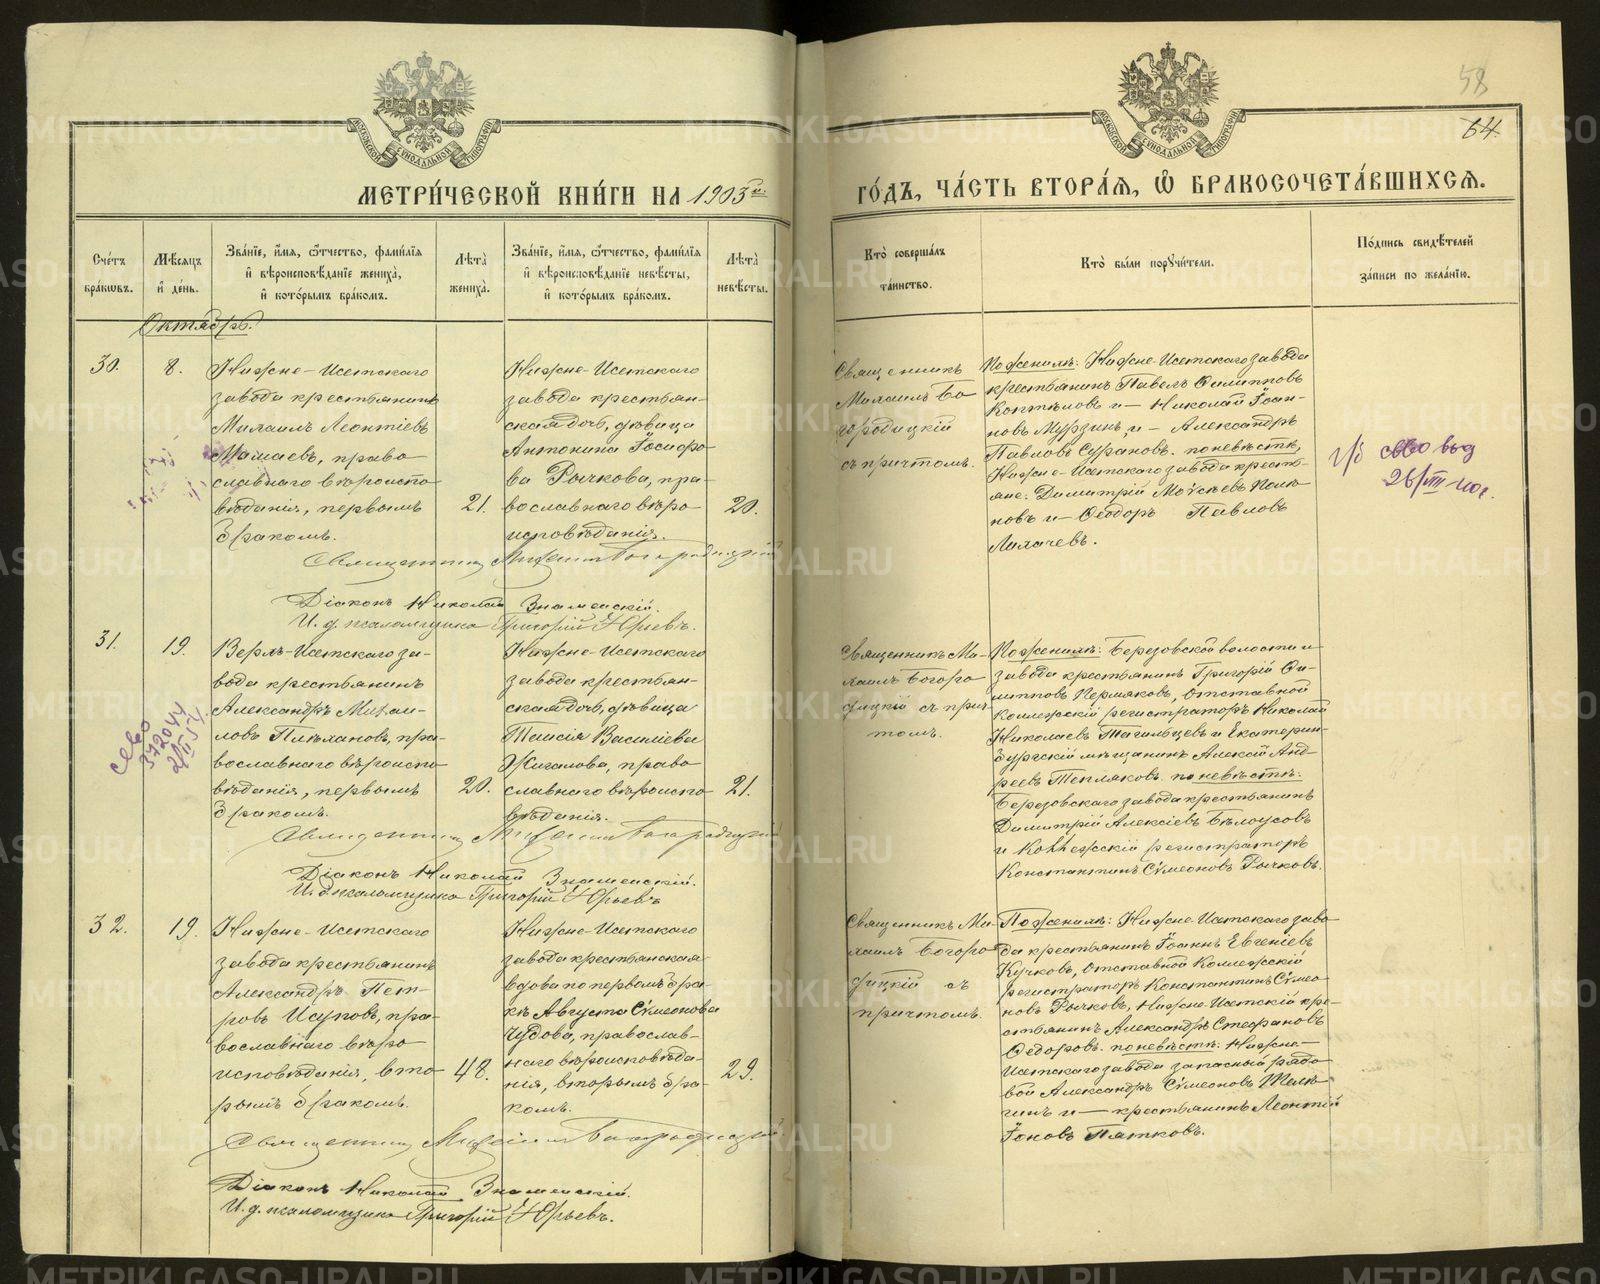 58
64.
МОСКОВСКОЙ СѴНОДАЛЬНОЙ ТИПОГРАФІИ
МОСКОВСКОЙ СѴНОДАЛЬНОЙ ТИПОГРАФІИ
МЕТРИ́ЧЕСКОЙ КНИ́ГИ НА 1903й
ГО́ДЪ, ЧА́СТЬ ВТОРА́Я, Ѽ БРАКОСОЧЕТА́ВШИХСЯ.
Сче́тъ
бра́кωвъ.
Мѣ́сяцъ
и҆ де́нь.
Зва́нїе, и҆́мя, ѻ҆́тчество, фами́лїя
и҆ вѣроисповѣ́данїе жениха̀,
и҆ кото́рымъ бра́комъ.
Лѣта̀
жениха̀.
Зва́нїе, и҆́мя, ѻ҆́тчество, фами́лїя
и҆ вѣроисповѣ́данїе невѣ́сты,
и҆ кото́рымъ бра́комъ.
Лѣта̀
невѣ́сты.
Кто̀ соверша́лъ
та́инство.
Кто̀ бы́ли порꙋчи́тели.
По́дпись свидѣ́телей
за́писи по жела́нїю.
Октябрь.
30.
8.
Нижне-Исетскаго
завода крестьянинъ
Михаилъ Леонтіевъ
Мамаевъ, право
славнаго вѣроиспо
вѣданія, первымъ
бракомъ.
21.
Нижне-Исетскаго
завода крестьян-
ская дочь, дѣвица
Антонина Іосифо
ва Рычкова, пра-
вославнаго вѣро
исповѣданія.
20.
Священникъ
Михаилъ Бо
городицкій
съ причтомъ.
По женихѣ: Нижне-Исетскаго завода
крестьянинъ Павелъ Филипповъ
Коптѣловъ и — Николай Іоан-
новъ Мурзинъ, и — Александръ
Павловъ Сурановъ. по невѣстѣ,
Нижне-Исетскаго завода кресть-
яне: Димитрій Моѵсеевъ Полю
новъ и — Ѳеодоръ Павловъ
Лихачевъ.
св-во выд
26/VIII-40г.
Священникъ Михаилъ Богородицкій
Діаконъ Николай Знаменскій.
И. д. псаломщика Григорій Юрьевъ.
31.
19.
Верхъ-Исетскаго за-
вода крестьянинъ
Александръ Михаи-
ловъ Плѣхановъ, пра-
вославнаго вѣроиспо
вѣданія, первымъ
бракомъ.
20.
Нижне-Исетскаго
завода крестьян-
ская дочь, дѣвица
Таисія Василіева
Жигалова, право
славнаго вѣроиспо
вѣданія.
21.
Священникъ Ми-
хаилъ Богоро
дицкій съ прич-
томъ.
По женихѣ: Березовской волости и
завода крестьянинъ Григорій Фи-
липповъ Пермяковъ, Отставной
Коллежскій регистраторъ Николай
Николаевъ Тагильцевъ и Екатерин-
бургскій мѣщанинъ Алексѣй Анд-
реевъ Тепляковъ. по невѣстѣ:
Березовскаго завода крестьянинъ
Димитрій Алексіевъ Бѣлоусовъ
и Коллежскій регистраторъ
Константинъ Сѵмеоновъ Рычковъ.
св-во
372044
2/II 54.
Священникъ Михаилъ Богородицкій
Діаконъ Николай Знаменскій.
И. д. псаломщика Григорій Юрьевъ
32.
19.
Нижне-Исетскаго
завода крестьянинъ
Александръ Пет-
ровъ Исуповъ, пра-
вославнаго вѣро
исповѣданія, вто
рымъ бракомъ.
48.
Нижне-Исетскаго
завода крестьянская
вдова по первомъ бра
кѣ Августа Сѵмеонова
Чудова, православ-
наго вѣроисповѣда-
нія, вторымъ бра-
комъ.
29.
Священникъ Ми
хаилъ Богоро
дицкій съ
причтомъ.
По женихѣ: Нижне-Исетскаго заво
да крестьянинъ Іоаннъ Евгеніевъ
Кучковъ, Отставной Коллежскій
регистраторъ Константинъ Сѵмео-
новъ Рычковъ, Нижне-Исетскій кре-
стьянинъ Александръ Стефановъ
Ѳедоровъ. по невѣстѣ: Нижне-
Исетскаго завода запасный рядо
вой Александръ Сѵмеоновъ Телѣ
гинъ и — крестьянинъ Леонтій
Іоновъ Пятковъ.
Священникъ Михаилъ Богородицкій
Діаконъ Николай Знаменскій.
И. д. псаломщика Григорій Юрьевъ.
METRIKI.GASO-URAL.RU